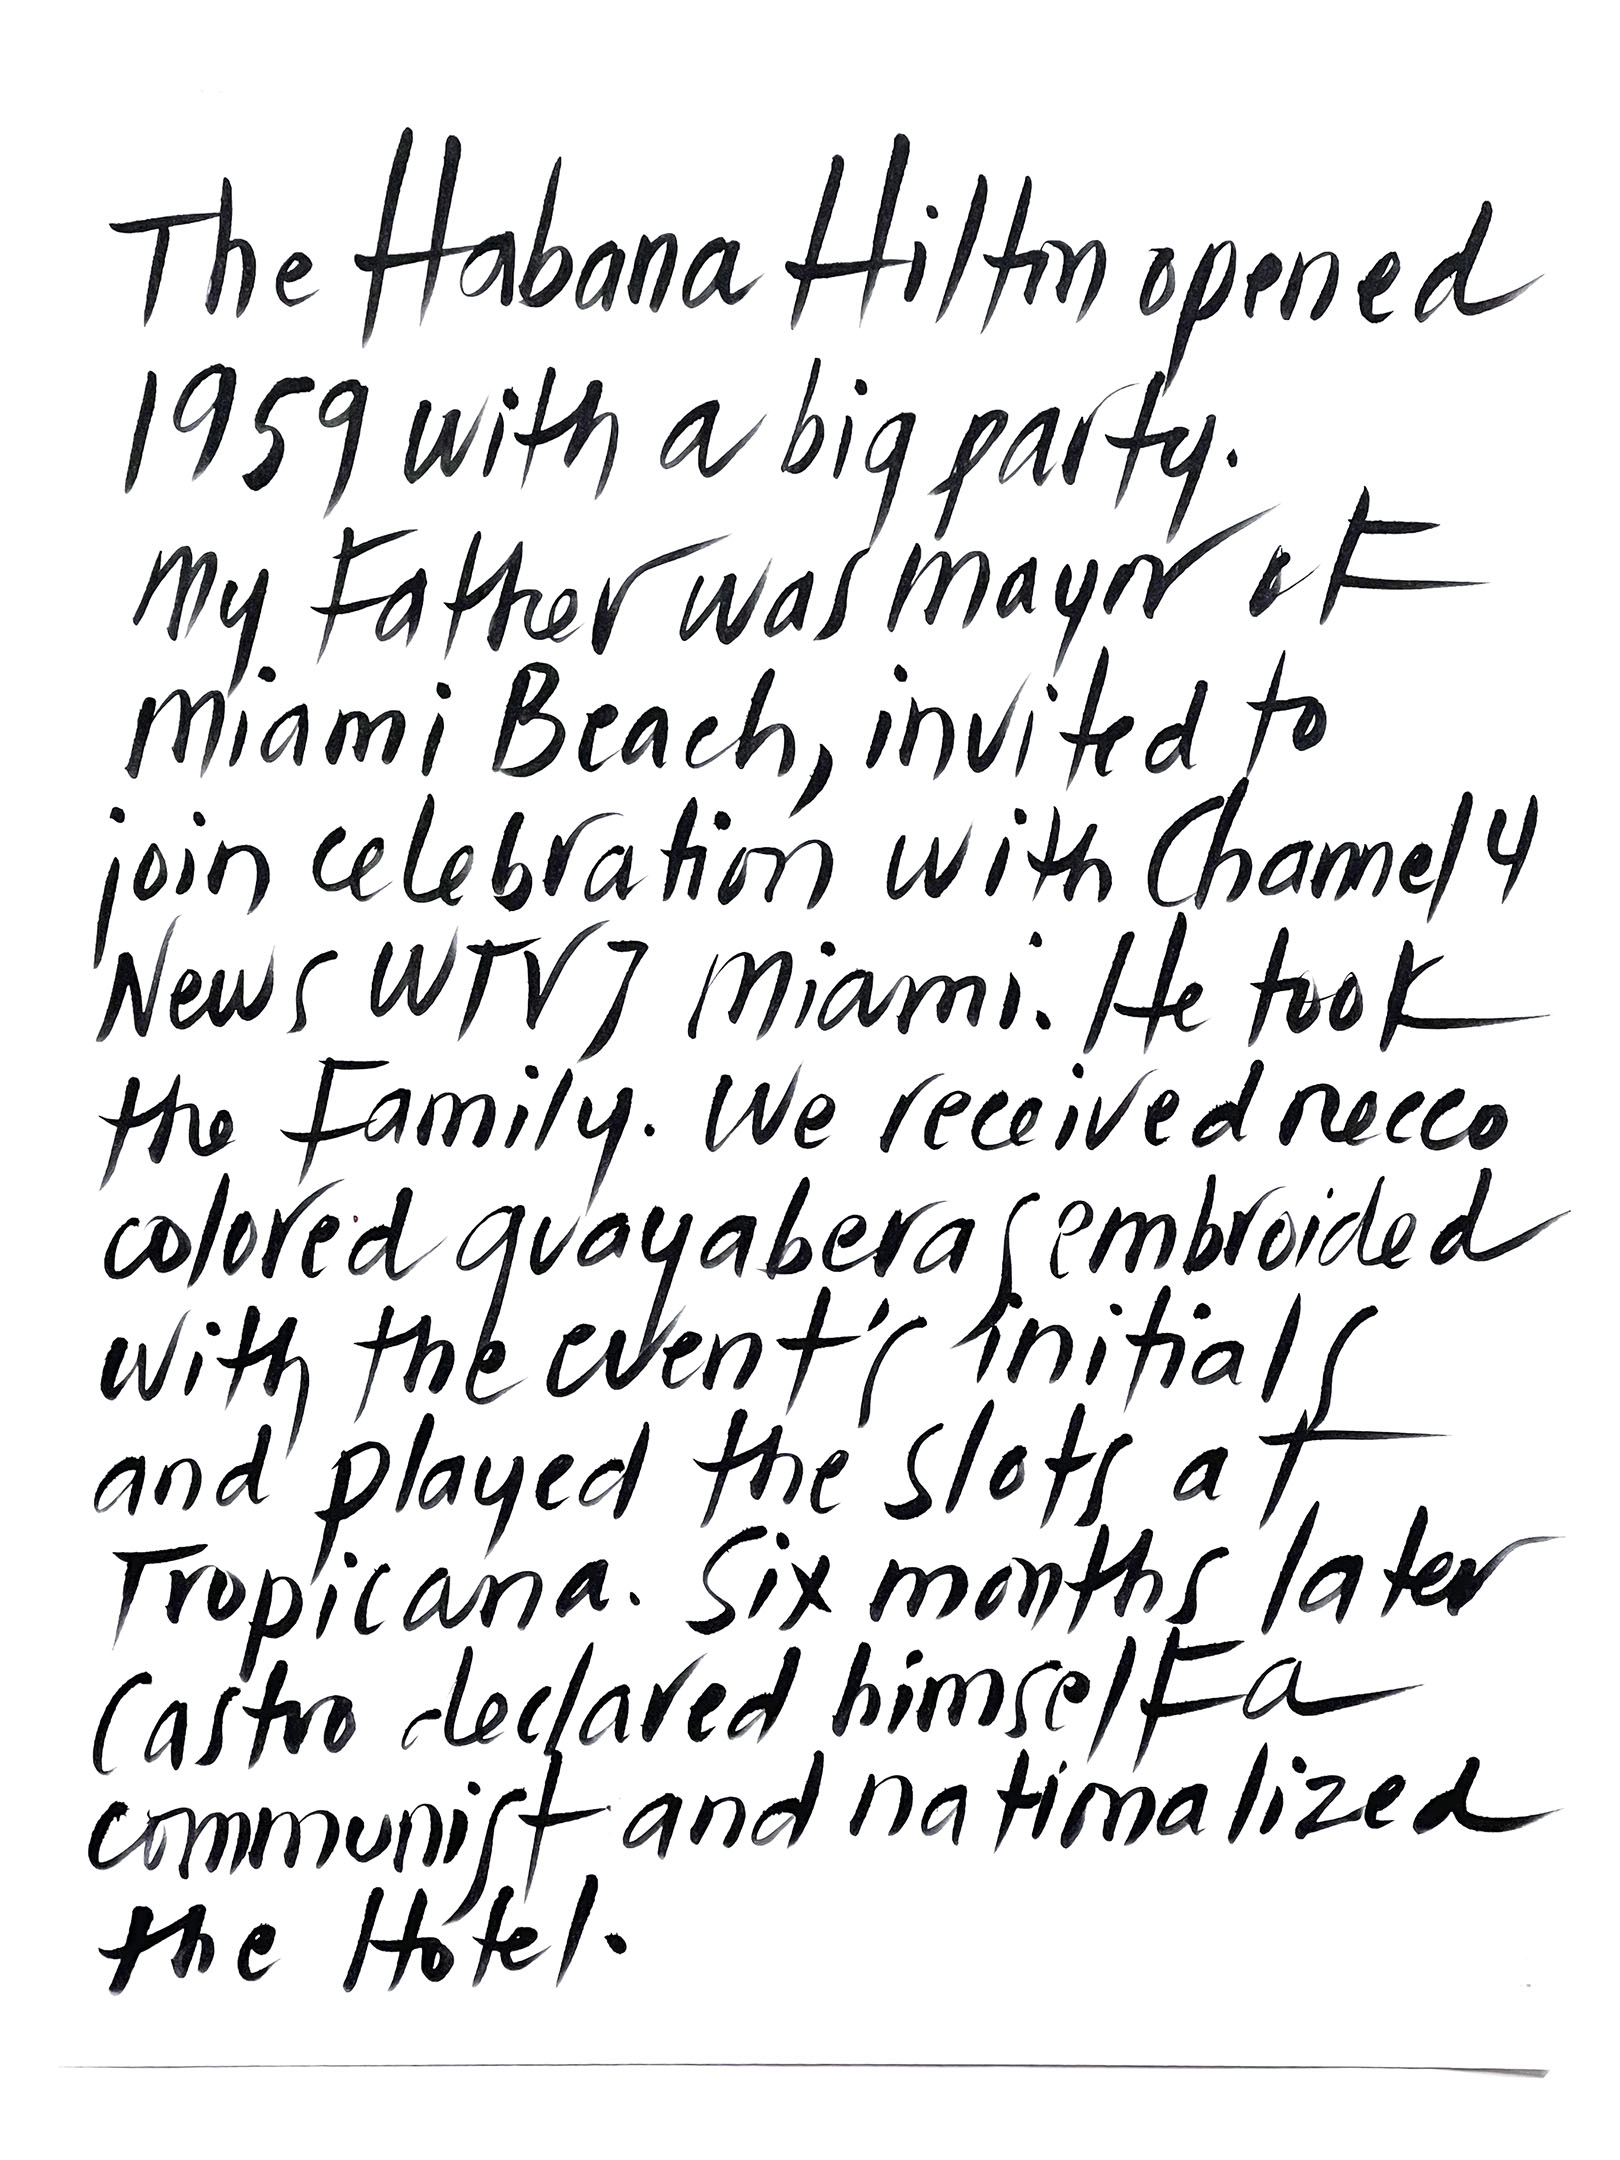 The Habana Hilton opened
1959 with a big party.
My Father was mayor of
Miami Beach, invited to
join celebration with Channel 4
News WTVJ Miami. He took
the Family. We received necco
colored guayaberas embroided
with the event's initials
and played the slots at
Tropicana. Six months later
Castro declared himself a
communist and nationalized
the Hotel.